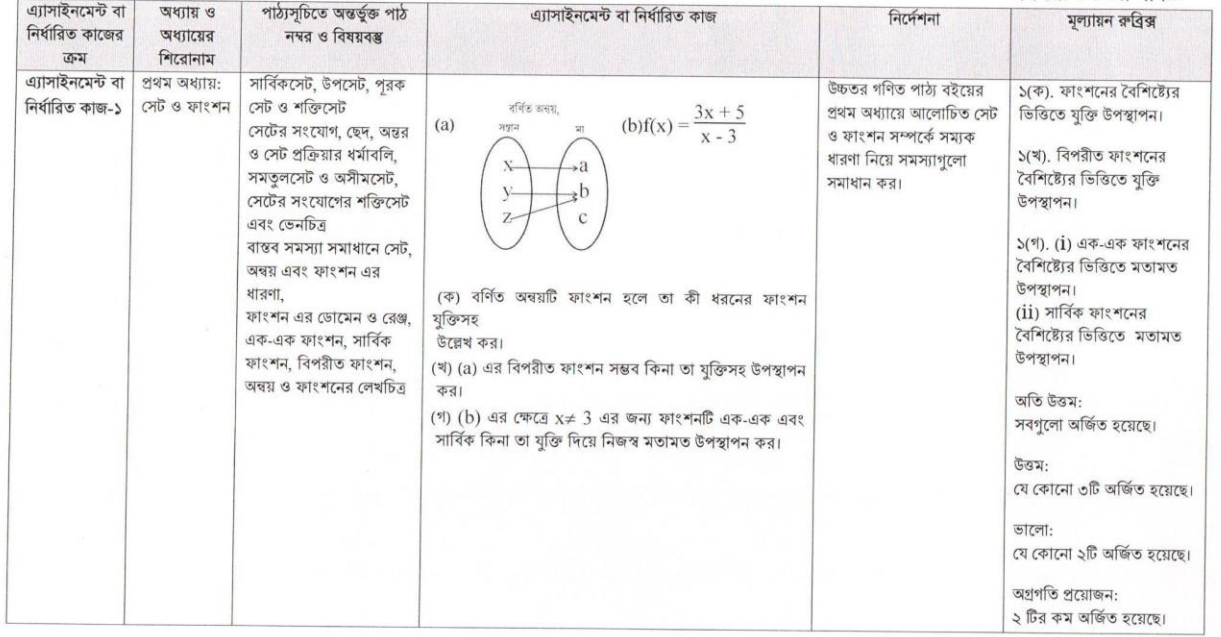 এ্যাসাইনমেন্ট বা
নির্ধারিত কাজের
ক্রম
অধ্যায় ও
অধ্যায়ের
শিরোনাম
পাঠ্যসূচিতে অন্তর্ভুক্ত পাঠ
নম্বর ও বিষয়বস্তু
এ্যাসাইনমেন্ট বা নির্ধারিত কাজ
নির্দেশনা
মূল্যায়ন রুব্রিক্স
এ্যাসাইনমেন্ট বা
নির্ধারিত কাজ-১
প্রথম অধ্যায়:
সেট ও ফাংশন
সার্বিকসেট, উপসেট, পূরক
সেট ও শক্তিসেট
সেটের সংযোগ, ছেদ, অন্তর
ও সেট প্রক্রিয়ার ধর্মাবলি,
সমতুলসেট ও অসীমসেট,
সেটের সংযোগের শক্তিসেট
এবং ভেনচিত্র
বাস্তব সমস্যা সমাধানে সেট,
অন্বয় এবং ফাংশন এর
ধারণা,
ফাংশন এর ডোমেন ও রেঞ্জ,
এক-এক ফাংশন, সার্বিক
ফাংশন, বিপরীত ফাংশন,
অন্বয় ও ফাংশনের লেখচিত্র
বর্ণিত অন্বয়,
(a) সন্তান মা (b)f(x) = 3x + 5 / x - 3
x a
y b
z c
(ক) বর্ণিত অন্বয়টি ফাংশন হলে তা কী ধরনের ফাংশন
যুক্তিসহ
উল্লেখ কর।
(খ) (a) এর বিপরীত ফাংশন সম্ভব কিনা তা যুক্তিসহ উপস্থাপন
কর।
(গ) (b) এর ক্ষেত্রে x≠ 3 এর জন্য ফাংশনটি এক-এক এবং
সার্বিক কিনা তা যুক্তি দিয়ে নিজস্ব মতামত উপস্থাপন কর।
উচ্চতর গণিত পাঠ্য বইয়ের
প্রথম অধ্যায়ে আলোচিত সেট
ও ফাংশন সম্পর্কে সম্যক
ধারণা নিয়ে সমস্যাগুলো
সমাধান কর।
১(ক). ফাংশনের বৈশিষ্ট্যের
ভিত্তিতে যুক্তি উপস্থাপন।
১(খ). বিপরীত ফাংশনের
বৈশিষ্ট্যের ভিত্তিতে যুক্তি
উপস্থাপন।
১(গ). (i) এক-এক ফাংশনের
বৈশিষ্ট্যের ভিত্তিতে মতামত
উপস্থাপন।
(ii) সার্বিক ফাংশনের
বৈশিষ্ট্যের ভিত্তিতে মতামত
উপস্থাপন।
অতি উত্তম:
সবগুলো অর্জিত হয়েছে।
উত্তম:
যে কোনো ৩টি অর্জিত হয়েছে।
ভালো:
যে কোনো ২টি অর্জিত হয়েছে।
অগ্রগতি প্রয়োজন:
২ টির কম অর্জিত হয়েছে।